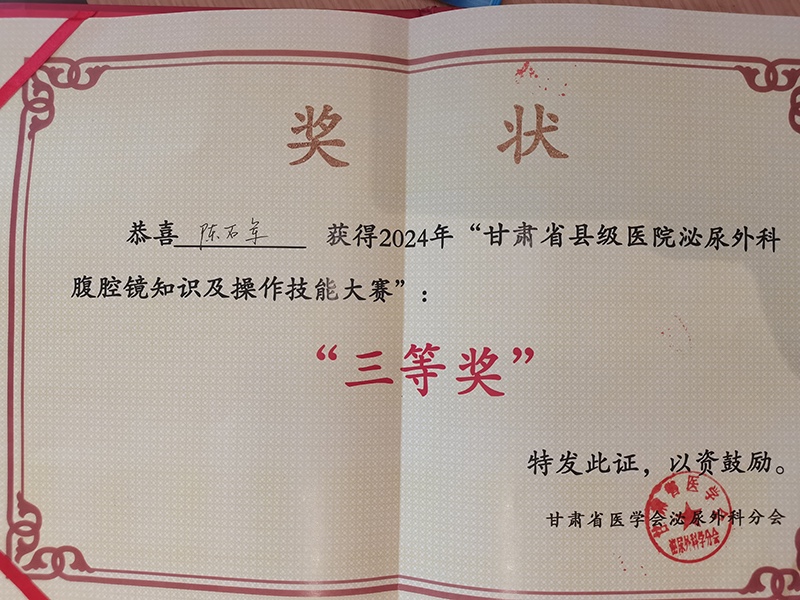 奖 状
恭喜 陈石军 获得2024年“甘肃省县级医院泌尿外科
腹腔镜知识及操作技能大赛”：
“三等奖”
特发此证，以资鼓励。
甘肃省医学会泌尿外科分会
甘肃省医学会
泌尿外科学分会